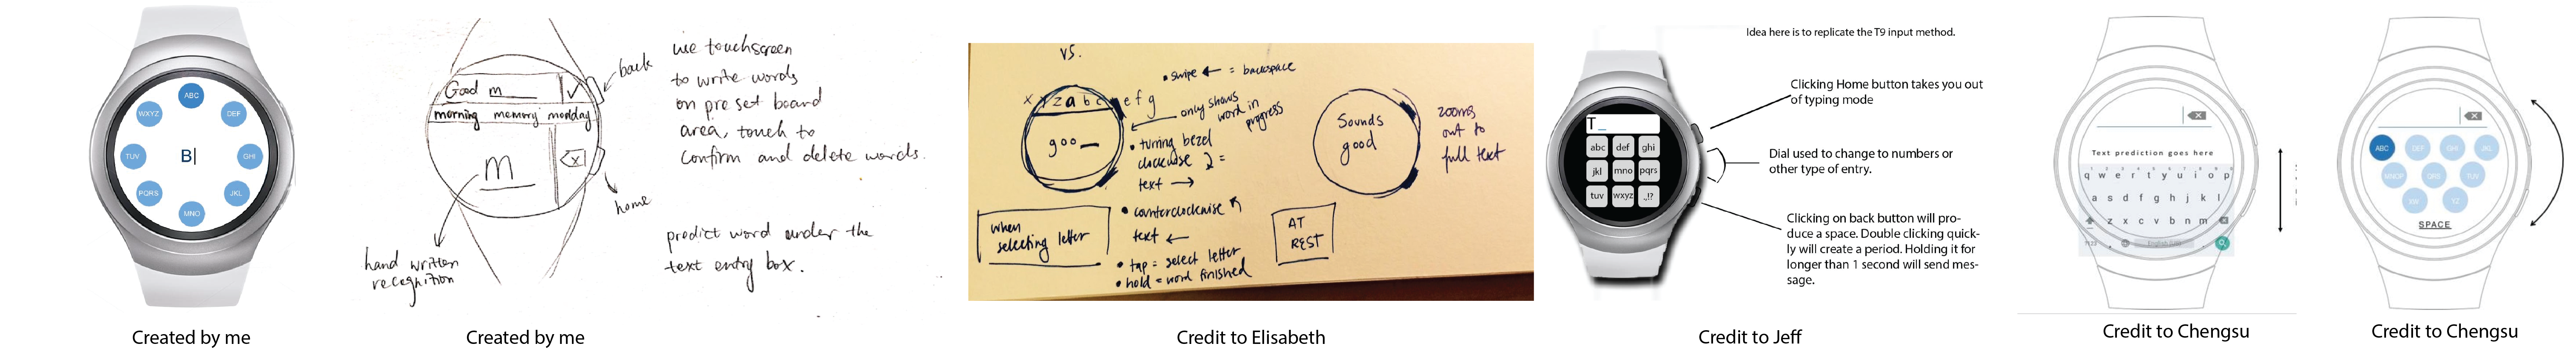 ABC
WXYZ
DEF
TUV
B|
GHI
PQRS
JKL
MNO
Created by me
Good m
morning memory monday
m
back
home
hand written
recognition
use touchscreen
to write words
on pre set board
area, touch to
confirm and delete words.
predict word under the
text entry box.
Created by me
vs.
• swipe ← = backspace
x y z a b c e f g
only shows
word in
progress
goo_
• turning bezel
clockwise =
text →
• counterclockwise
text ←
• tap = select letter
• hold = word finished
when
selecting letter
Sounds
good
zooms
out to
full text
AT
REST
Credit to Elisabeth
Idea here is to replicate the T9 input method.
T_
abc def ghi
jkl mno pqrs
tuv wxyz .,!?
Clicking Home button takes you out
of typing mode
Dial used to change to numbers or
other type of entry.
Clicking on back button will pro-
duce a space. Double clicking quick-
ly will create a period. Holding it for
longer than 1 second will send mes-
sage.
Credit to Jeff
Text prediction goes here
q w e r t y u i o p
a s d f g h j k l
z x c v b n m
English (US)
Credit to Chengsu
ABC DEF GHI JKL
MNOP QRS TUV
YZ
SPACE
Credit to Chengsu